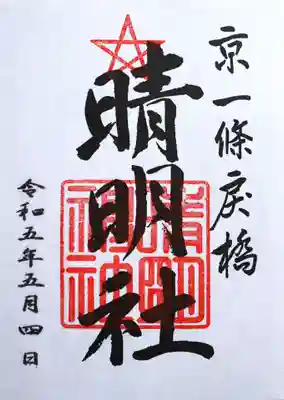 京一條戻橋
晴明社
晴明神社
令和五年五月四日